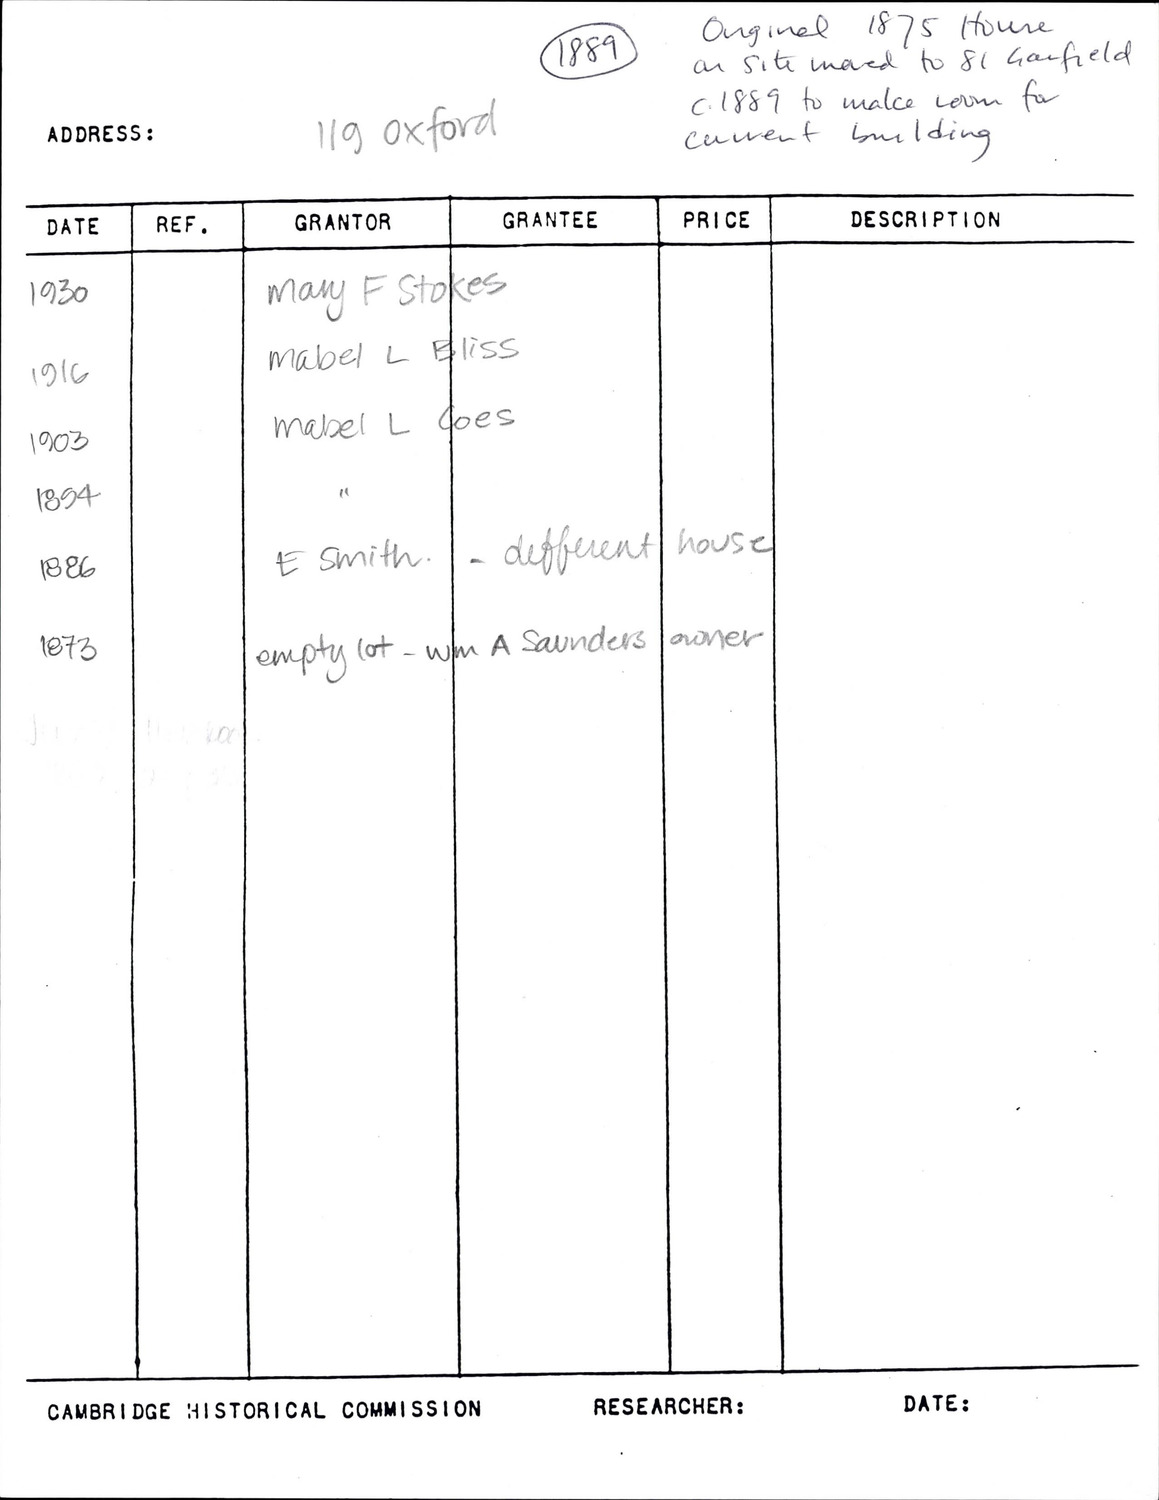 1889
Original 1875 House
on site moved to 81 Garfield
c. 1889 to make room for
current building
ADDRESS: 119 oxford
DATE REF. GRANTOR GRANTEE PRICE DESCRIPTION
1930 Mary F Stokes
1916 Mabel L Bliss
1903 Mabel L Coes
1894 "
1886 E Smith. - defferent house
1873 empty lot - Wm A Saunders owner
CAMBRIDGE HISTORICAL COMMISSION RESEARCHER: DATE: